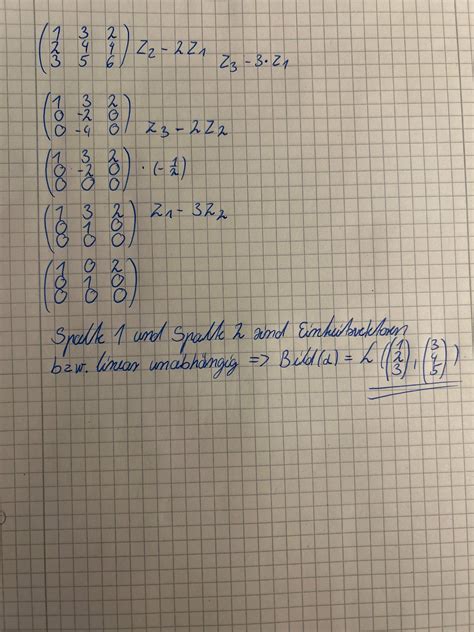 (1 3 2
2 4 4
3 5 6) Z2 - 2Z1 Z3 - 3·Z1
(1 3 2
0 -2 0
0 -4 0) Z3 - 2Z2
(1 3 2
0 -2 0
0 0 0) · (-1/2)
(1 3 2
0 1 0
0 0 0) Z1 - 3Z2
(1 0 2
0 1 0
0 0 0)
Spalte 1 und Spalte 2 sind Einheitsvektoren
bzw. linear unabhängig => Bild(α) = L ((1 2 3), (3 4 5))